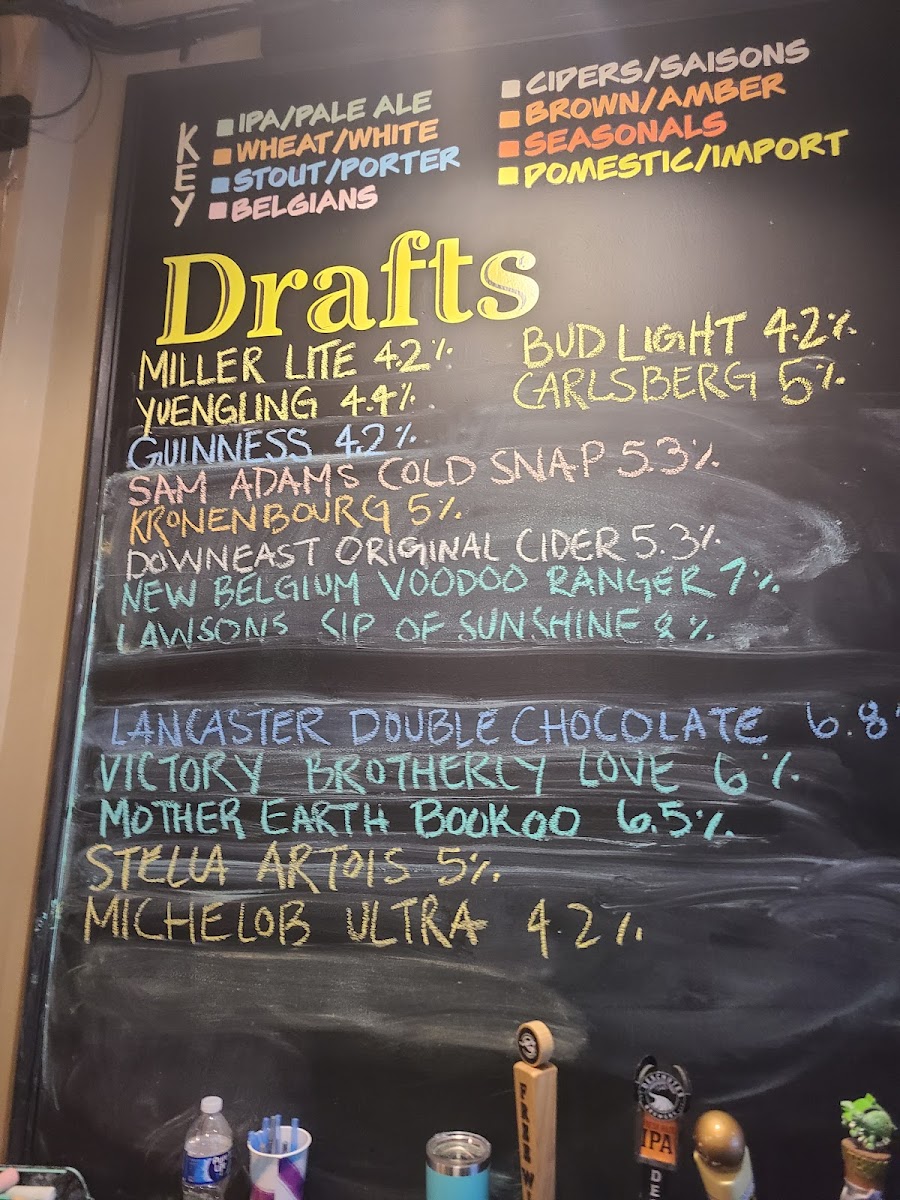 KEY
IPA/PALE ALE
WHEAT/WHITE
STOUT/PORTER
BELGIANS
CIDERS/SAISONS
BROWN/AMBER
SEASONALS
DOMESTIC/IMPORT
Drafts
MILLER LITE 4.2%
YUENGLING 4.4%
BUD LIGHT 4.2%
CARLSBERG 5%
GUINNESS 4.2%
SAM ADAMS COLD SNAP 5.3%
KRONENBOURG 5%
DOWNEAST ORIGINAL CIDER 5.3%
NEW BELGIUM VOODOO RANGER 7%
LAWSONS SIP OF SUNSHINE 8%
LANCASTER DOUBLE CHOCOLATE 6.8
VICTORY BROTHERLY LOVE 6%
MOTHER EARTH BOOKOO 6.5%
STELLA ARTOIS 5%
MICHELOB ULTRA 4.2%
IPA